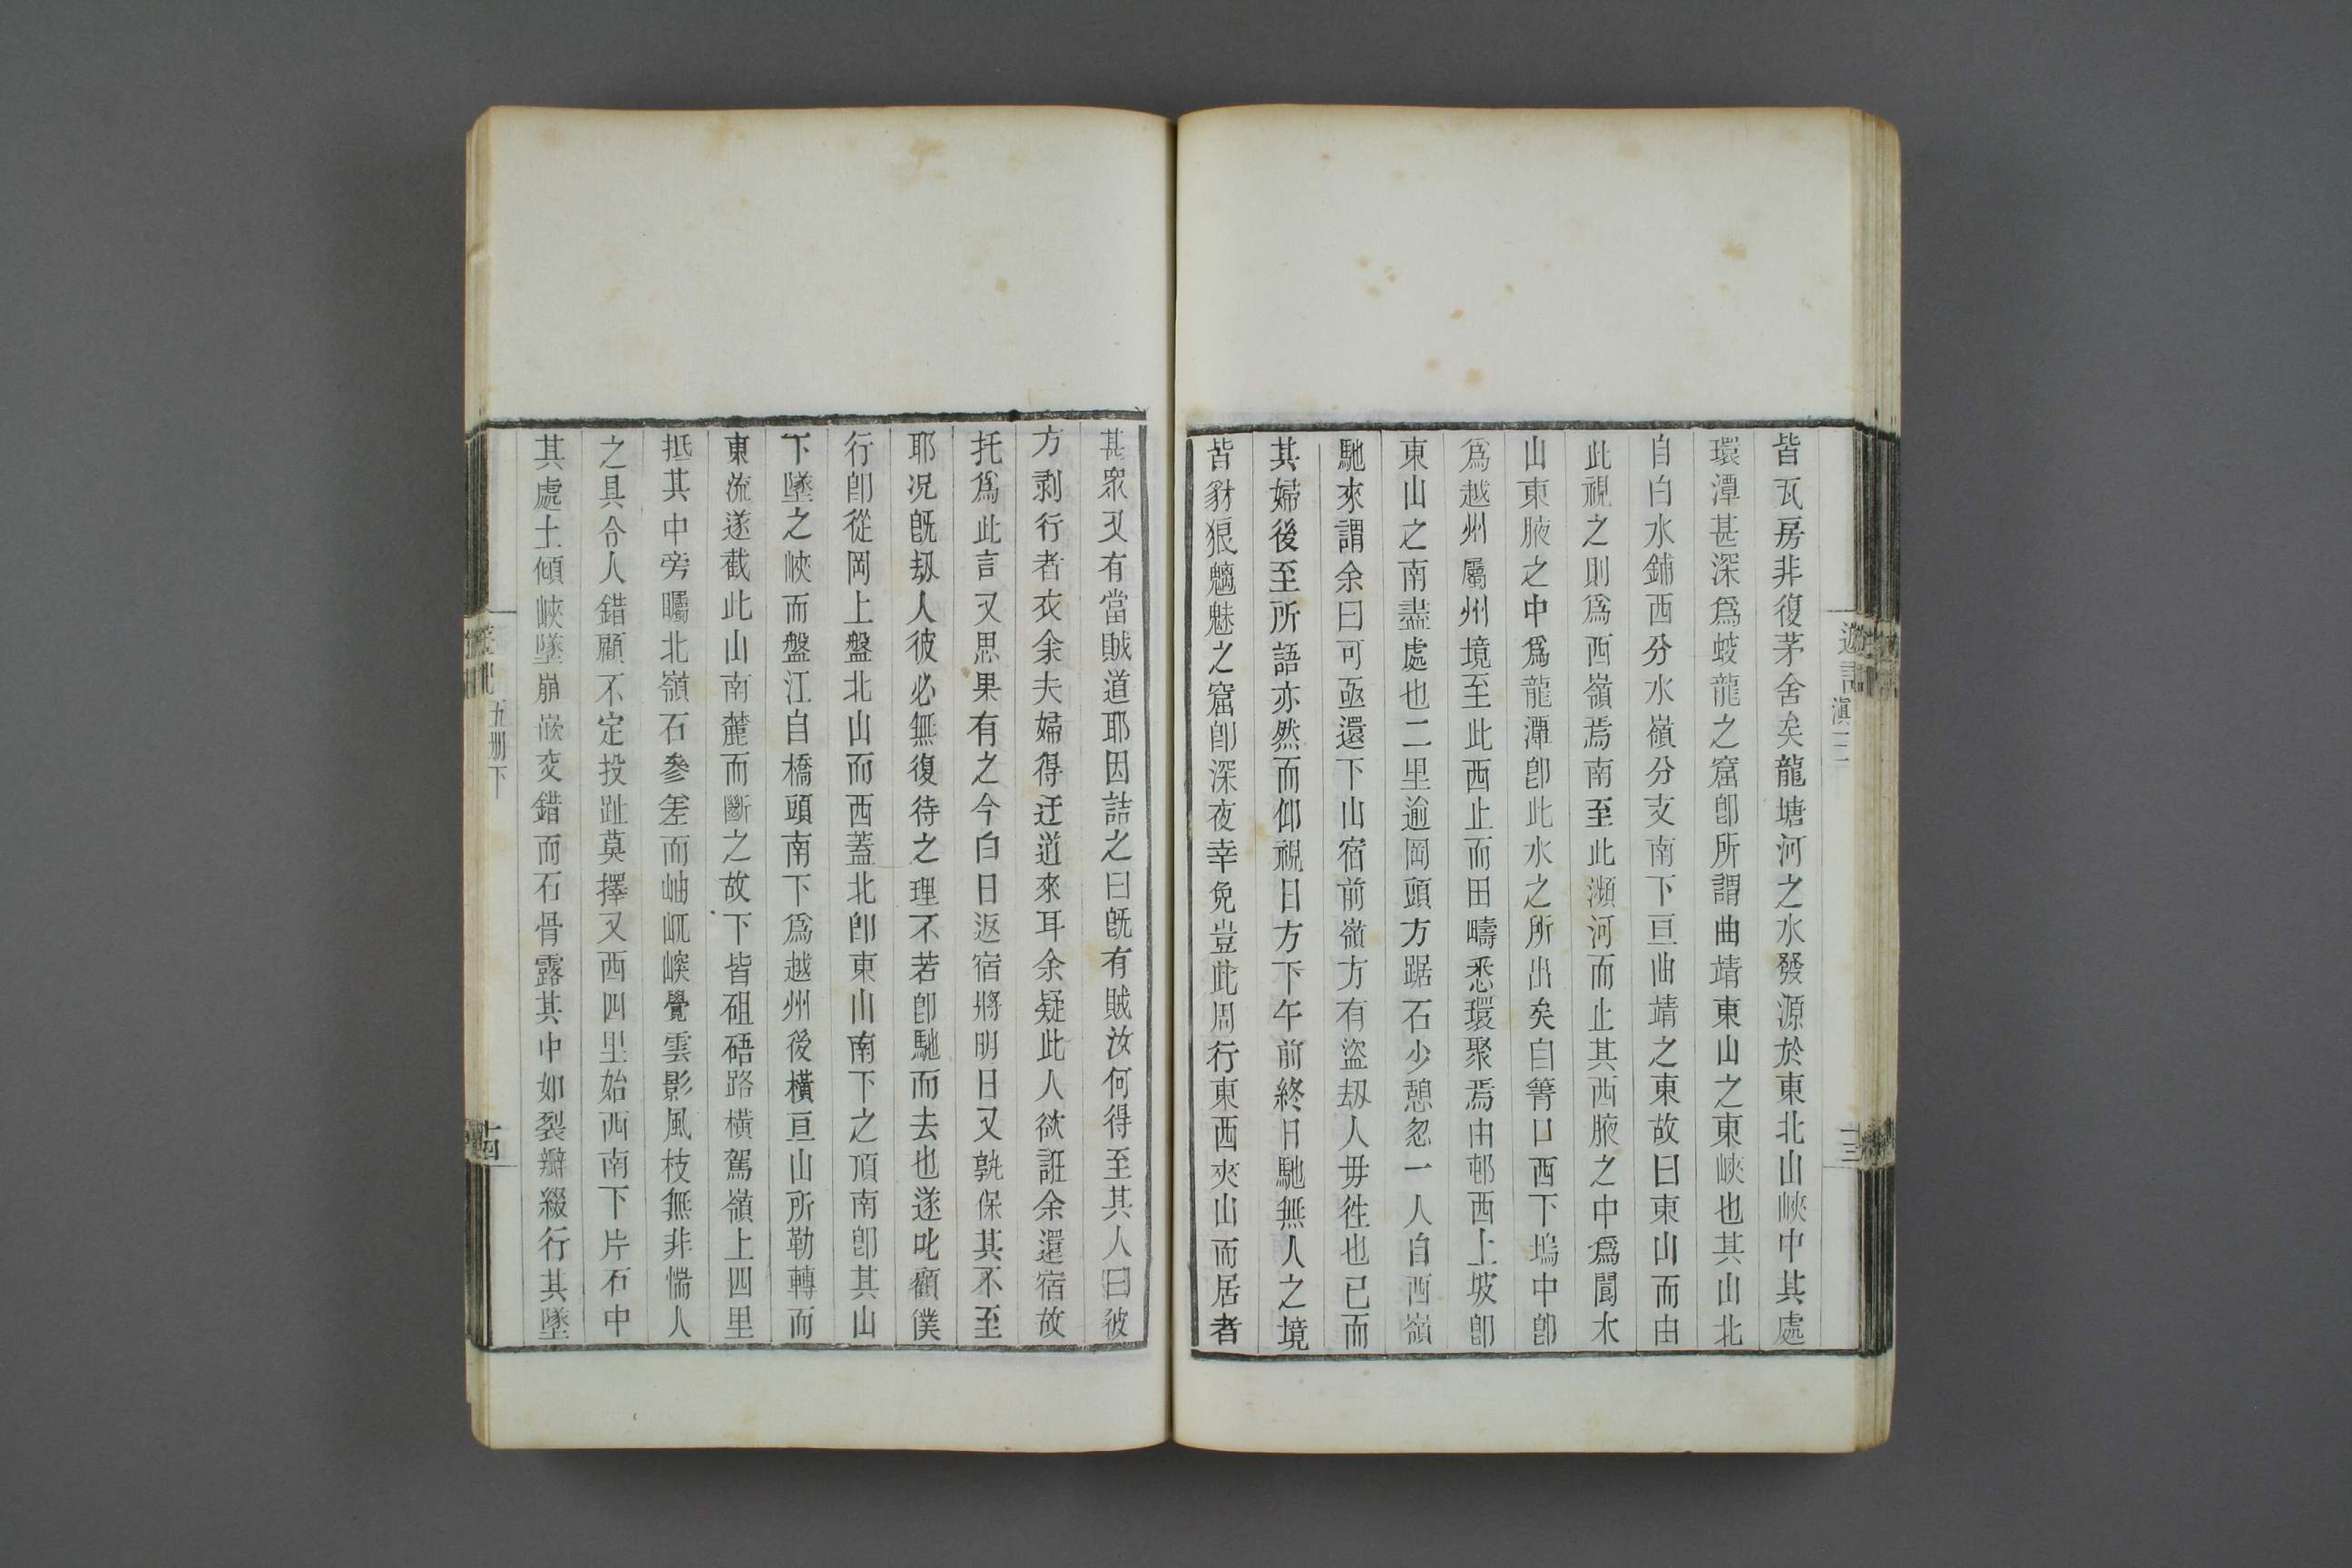 遊記 滇二
十三
皆瓦房非復茅舍矣龍塘河之水發源於東北山峽中其處
環潭甚深爲蛟龍之窟卽所謂曲靖東山之東峽也其山北
自白水鋪西分水嶺分支南下亘曲靖之東故曰東山而由
此視之則爲西嶺焉南至此瀕河而止其西腋之中爲閬木
山東腋之中爲龍潭卽此水之所出矣自箐口西下塢中卽
爲越州屬州境至此西止而田疇悉環聚焉由邨西上坡卽
東山之南盡處也二里逾岡頭方踞石少憩忽一人自西嶺
馳來謂余曰可亟還下山宿前嶺方有盜刼人毋徃也已而
其婦後至所語亦然而仰視日方下午前終日馳無人之境
皆豺狼魑魅之窟卽深夜幸免豈此周行東西夾山而居者
甚眾又有當賊道耶因詰之曰旣有賊汝何得至其人曰彼
方剥行者衣余夫婦得迂道來耳余疑此人欲誑余還宿故
托爲此言又思果有之今白日返宿將明日又孰保其不至
耶况旣刼人彼必無復待之理不若卽馳而去也遂叱顧僕
行卽從岡上盤北山而西蓋北卽東山南下之頂南卽其山
下墜之峽而盤江自橋頭南下爲越州後橫亘山所勒轉而
東流遂截此山南麓而斷之故下皆砠硞路橫駕嶺上四里
抵其中旁矚北嶺石參差而岫屼嵲覺雲影風枝無非惴人
之具令人錯顧不定投趾莫擇又西四里始西南下片石中
其處土傾峽墜崩嵌交錯而石骨露其中如裂瓣綴行其墜
五册下
十四